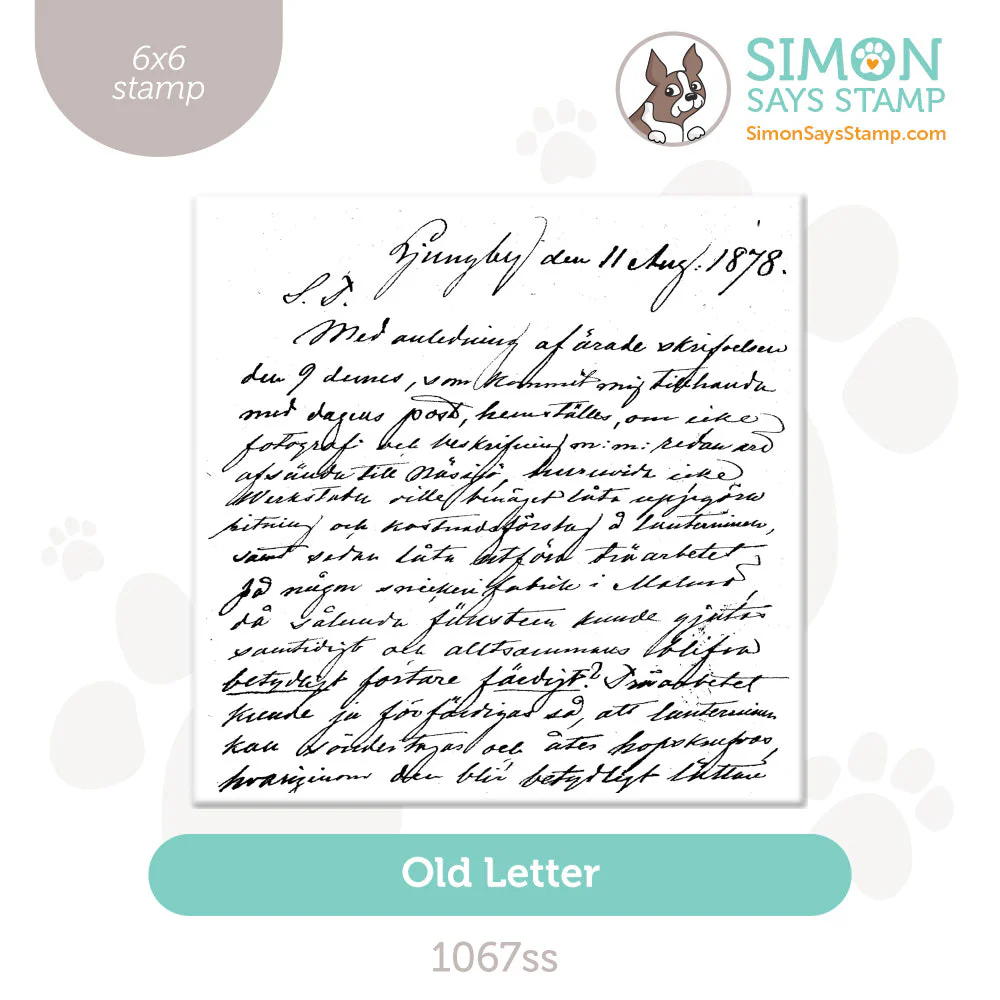 6x6
stamp
SIMON
SAYS STAMP
SimonSaysStamp.com
Ljungby den 11 Aug. 1878.
S. T.
Med anledning af ärade skrifvelsen
den 9 dennes, som kommit mig tillhanda
med dagens post, hemställes, om icke
fotografi och beskrifning m: m: redan äro
afsända till Nässjö, huruvida icke
Werkstaden ville benäget låta uppgöra
ritning och kostnadsförslag å lanterninen,
samt sedan låta utföra träarbetet
på någon snickerifabrik i Malmö
då sålunda fönstren kunde gjutas
samtidigt och alltsammans blifva
betydligt fortare färdigt? Träarbetet
kunde ju förfärdigas så, att lanterninen
kan söndertagas och åter hopskrufvas,
hvarigenom den blir betydligt lättare
Old Letter
1067ss